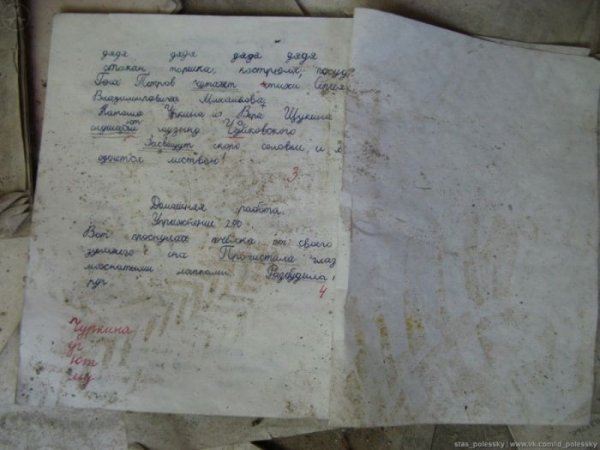 дядя дядя дядя дядя
стакан, тарелка, кастрюля, посуд
Петров читает стихи Сергея
Владимировича Михалкова.
Наташа Чуркина и Вера Щукина
слушают музыку Чайковского
Засвищут скоро соловьи, и
оденется листвою!
3
Домашняя работа.
Упражнение 290.
Вот проснулась пчёлка от своего
зимнего сна Прочистила глаз
мохнатыми лапками Разбудила
4
Чуркина
ут
ют
му
stas_polessky | www.vk.com/id_polessky